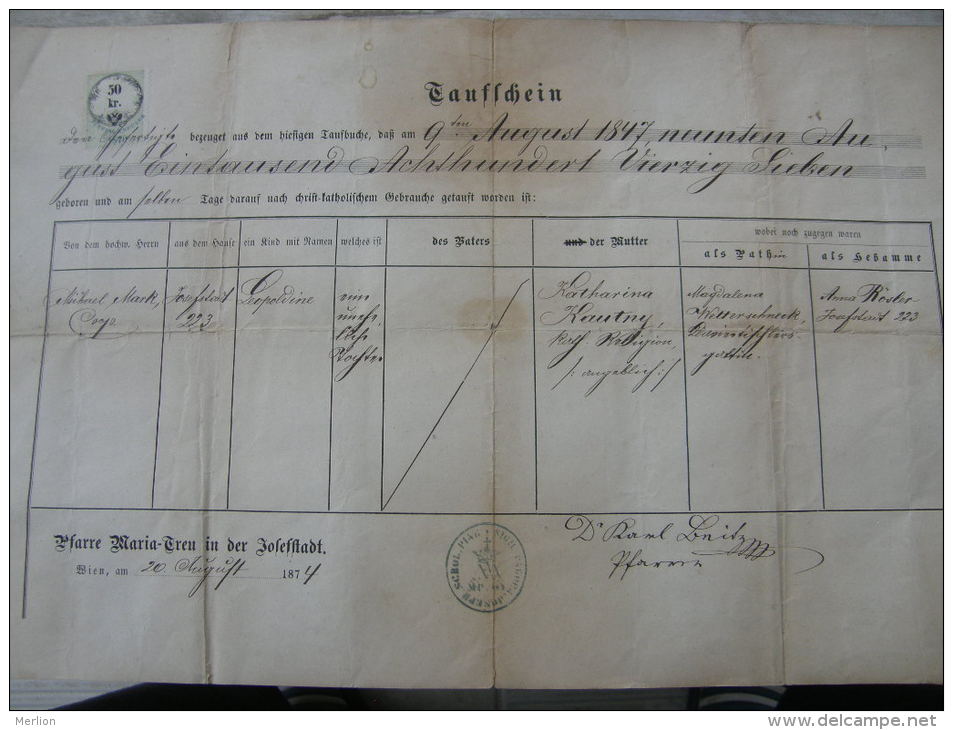 50
kr.
Taufschein
Der Gefertigte bezeuget aus dem hiesigen Taufbuche, daß am 9ten August 1847, neunten Au,
gust Eintausend Achthundert Vierzig Sieben
geboren und am selben Tage darauf nach christ-katholischem Gebrauche getauft worden ist:
wobei noch zugegen waren
Von dem hochw. Herrn aus dem Hause ein Kind mit Namen welches ist des Vaters und der Mutter als Pathin als Hebamme
Mihael Mark, Josefstadt Leopoldine eine Katharina Magdalena Anna Rösler
Coop. 223 unehe, Kautny, Josefstadt 223
liche kath Religion,
Tochter /: angeblich :/ gattin.
Pfarre Maria-Treu in der Josefstadt.
Dr Karl
Wien, am 20. August 1874
Pfarrer
Merlion
www.delcampe.net